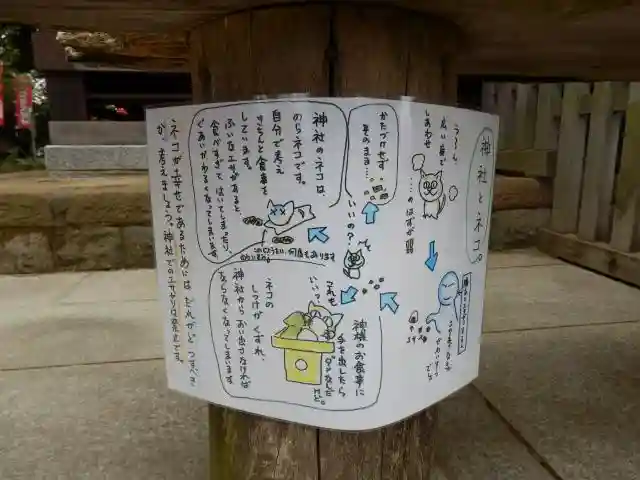 神社とネコ。
うろん、
広い庭で
しあわせ
…のはずが
かたづけせず
そのまま…
いいの？
神社のネコは、
のらネコです。
自分で考え
きちんと食事を
しています。
ふいなエサがあると、
食べすぎて、はいてしまったり、
ぐあいがわるくなってしまいます。
これも
いい？
神様のお食事に
手を出したら
ダメなんだ
けど。
ネコの
しつけがくずれ、
神社からおい出さなければ
ならなくなってしまいます
ネコが幸せであるためには、だれがどうすべき
か、考えましょう。神社でのエサやりは禁止です。